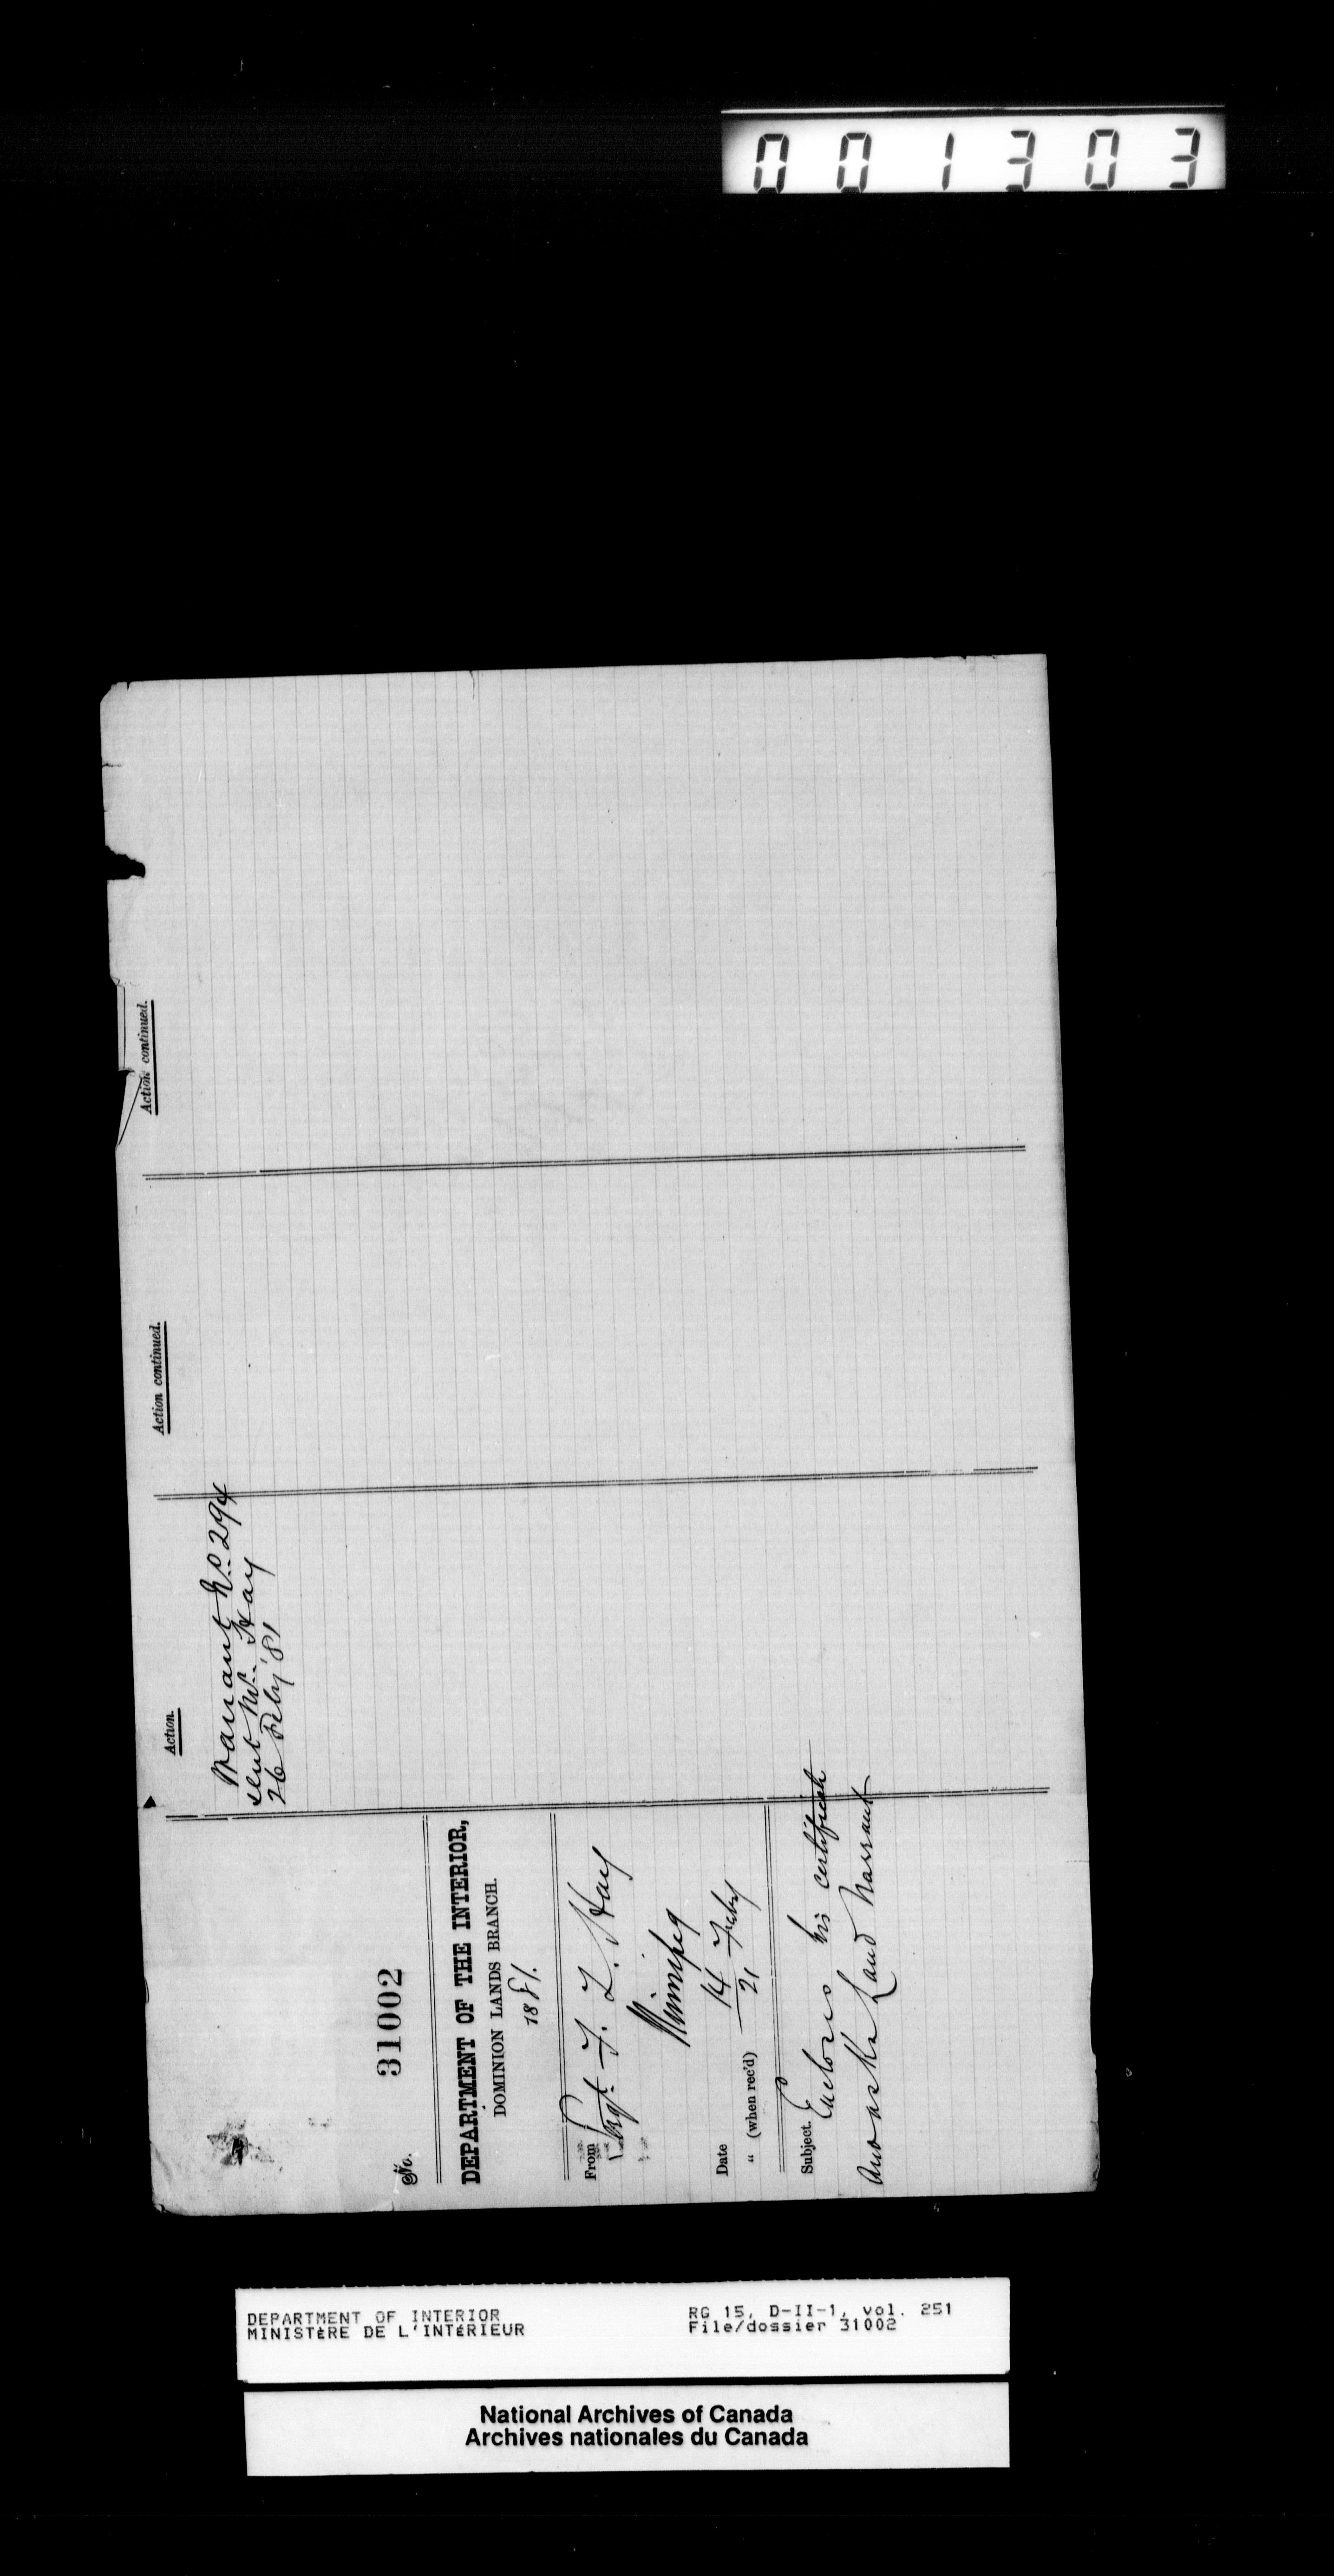 001303
No. 31002
DEPARTMENT OF THE INTERIOR,
DOMINION LANDS BRANCH.
1881.
From Sergt. J. L. Hay
Winnipeg
Date 14 Feby
" (when rec'd) 21
Subject. Encloses his certificate
and asks Land Warrant
Action.
Warrant No. 294
sent Mr. Hay
26 Feby '81
Action continued.
Action continued.
DEPARTMENT OF INTERIOR
MINISTÈRE DE L'INTÉRIEUR
RG 15, D-II-1, vol. 251
File/dossier 31002
National Archives of Canada
Archives nationales du Canada